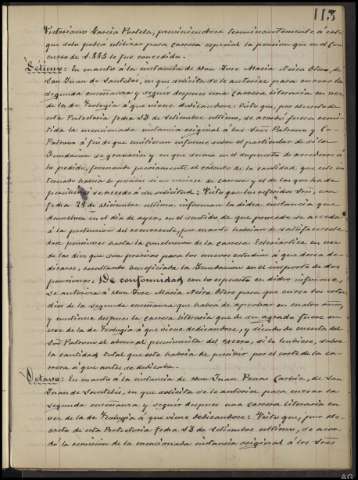 113
Victoriano García Portela, previniéndose terminantemente a éste
que solo podrá utilizar para carrera especial la pensión que en el Con
curso de 1883 le fué concedida.
Séptimo: En cuanto á la instancia de Don José María Neira Otero, de
San Juan de Santeles, en que solicita se le autorice para cursar la
segunda enseñanza y seguir después una carrera literaria en vez
de la de Teología á que viene dedicándose: Visto que, por decreto de
esta Rectoría fecha 13 de Setiembre último, se acordó fuera remi
tida la mencionada instancia original á los Señores Patrono y Co
Patrono á fin de que emitiesen informe sobre el particular de si la
Fundación se gravaría y en que suma en el supuesto de accederse á
lo pedido, formando previamente el cálculo de la cantidad, que este in
teresado habría de percibir si no variase de carrera y el de la que ha de
percibir si se accede á su solicitud: Visto que los referidos Señores, con
fecha 29 de Diciembre último informan la dicha instancia que
devuelven en el día de ayer, en el sentido de que procede se acceda
á la pretensión del recurrente, por cuanto habrían de satisfacérsele
doce pensiones hasta la conclusión de la carrera Eclesiástica en vez
de las diez que son precisas para los nuevos estudios á que desea de
dicarse, resultando beneficiada la Fundación en el importe de dos
pensiones; De conformidad con lo expuesto en dicho informe,
se autoriza á Don José María Neira Otero para que curse los estu
dios de la segunda enseñanza que habrá de aprobar en cuatro años,
y continúe después la carrera literaria que le sea agrada fuere en
vez de la de Teología á que viene dedicándose, y siendo de cuenta del
Señor Patrono el abono al pensionista del exceso, si lo hubiese, sobre
la cantidad total que éste habría de percibir por el resto de la car
rera á que antes se dedicaba.
Octavo: En cuanto á la instancia de Don Juan Pazos Carbia, de San
Juan de Santeles, en que solicita se le autorice para cursar la
segunda enseñanza y seguir después una carrera literaria en
vez de la de Teología á que viene dedicándose: Visto que, por de
creto de esta Rectoría fecha 13 de Setiembre último, se acor
dó la remisión de la mencionada instancia original á los Señores